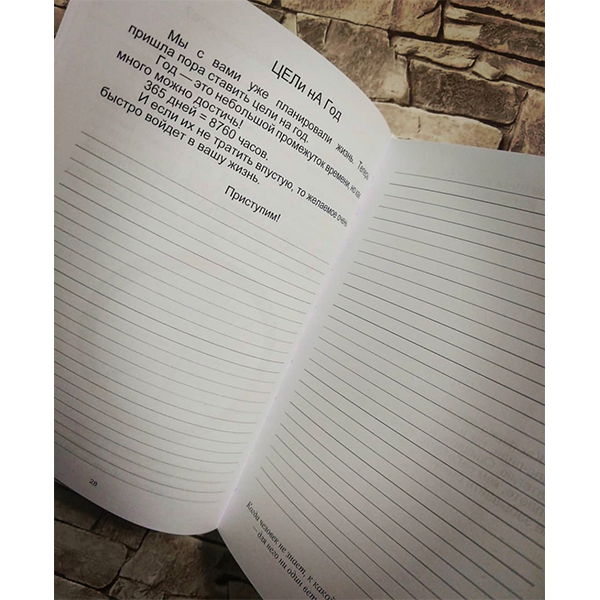 ЦЕЛи нА Год
Мы с вами уже планировали жизнь. Теперь
пришла пора ставить цели на год.
Год — это небольшой промежуток времени, но как
много можно достичь!
365 дней = 8760 часов.
И если их не тратить впустую, то желаемое очень
быстро войдет в вашу жизнь.
Приступим!
28
Когда человек не знает, к какой
— для него ни один вет